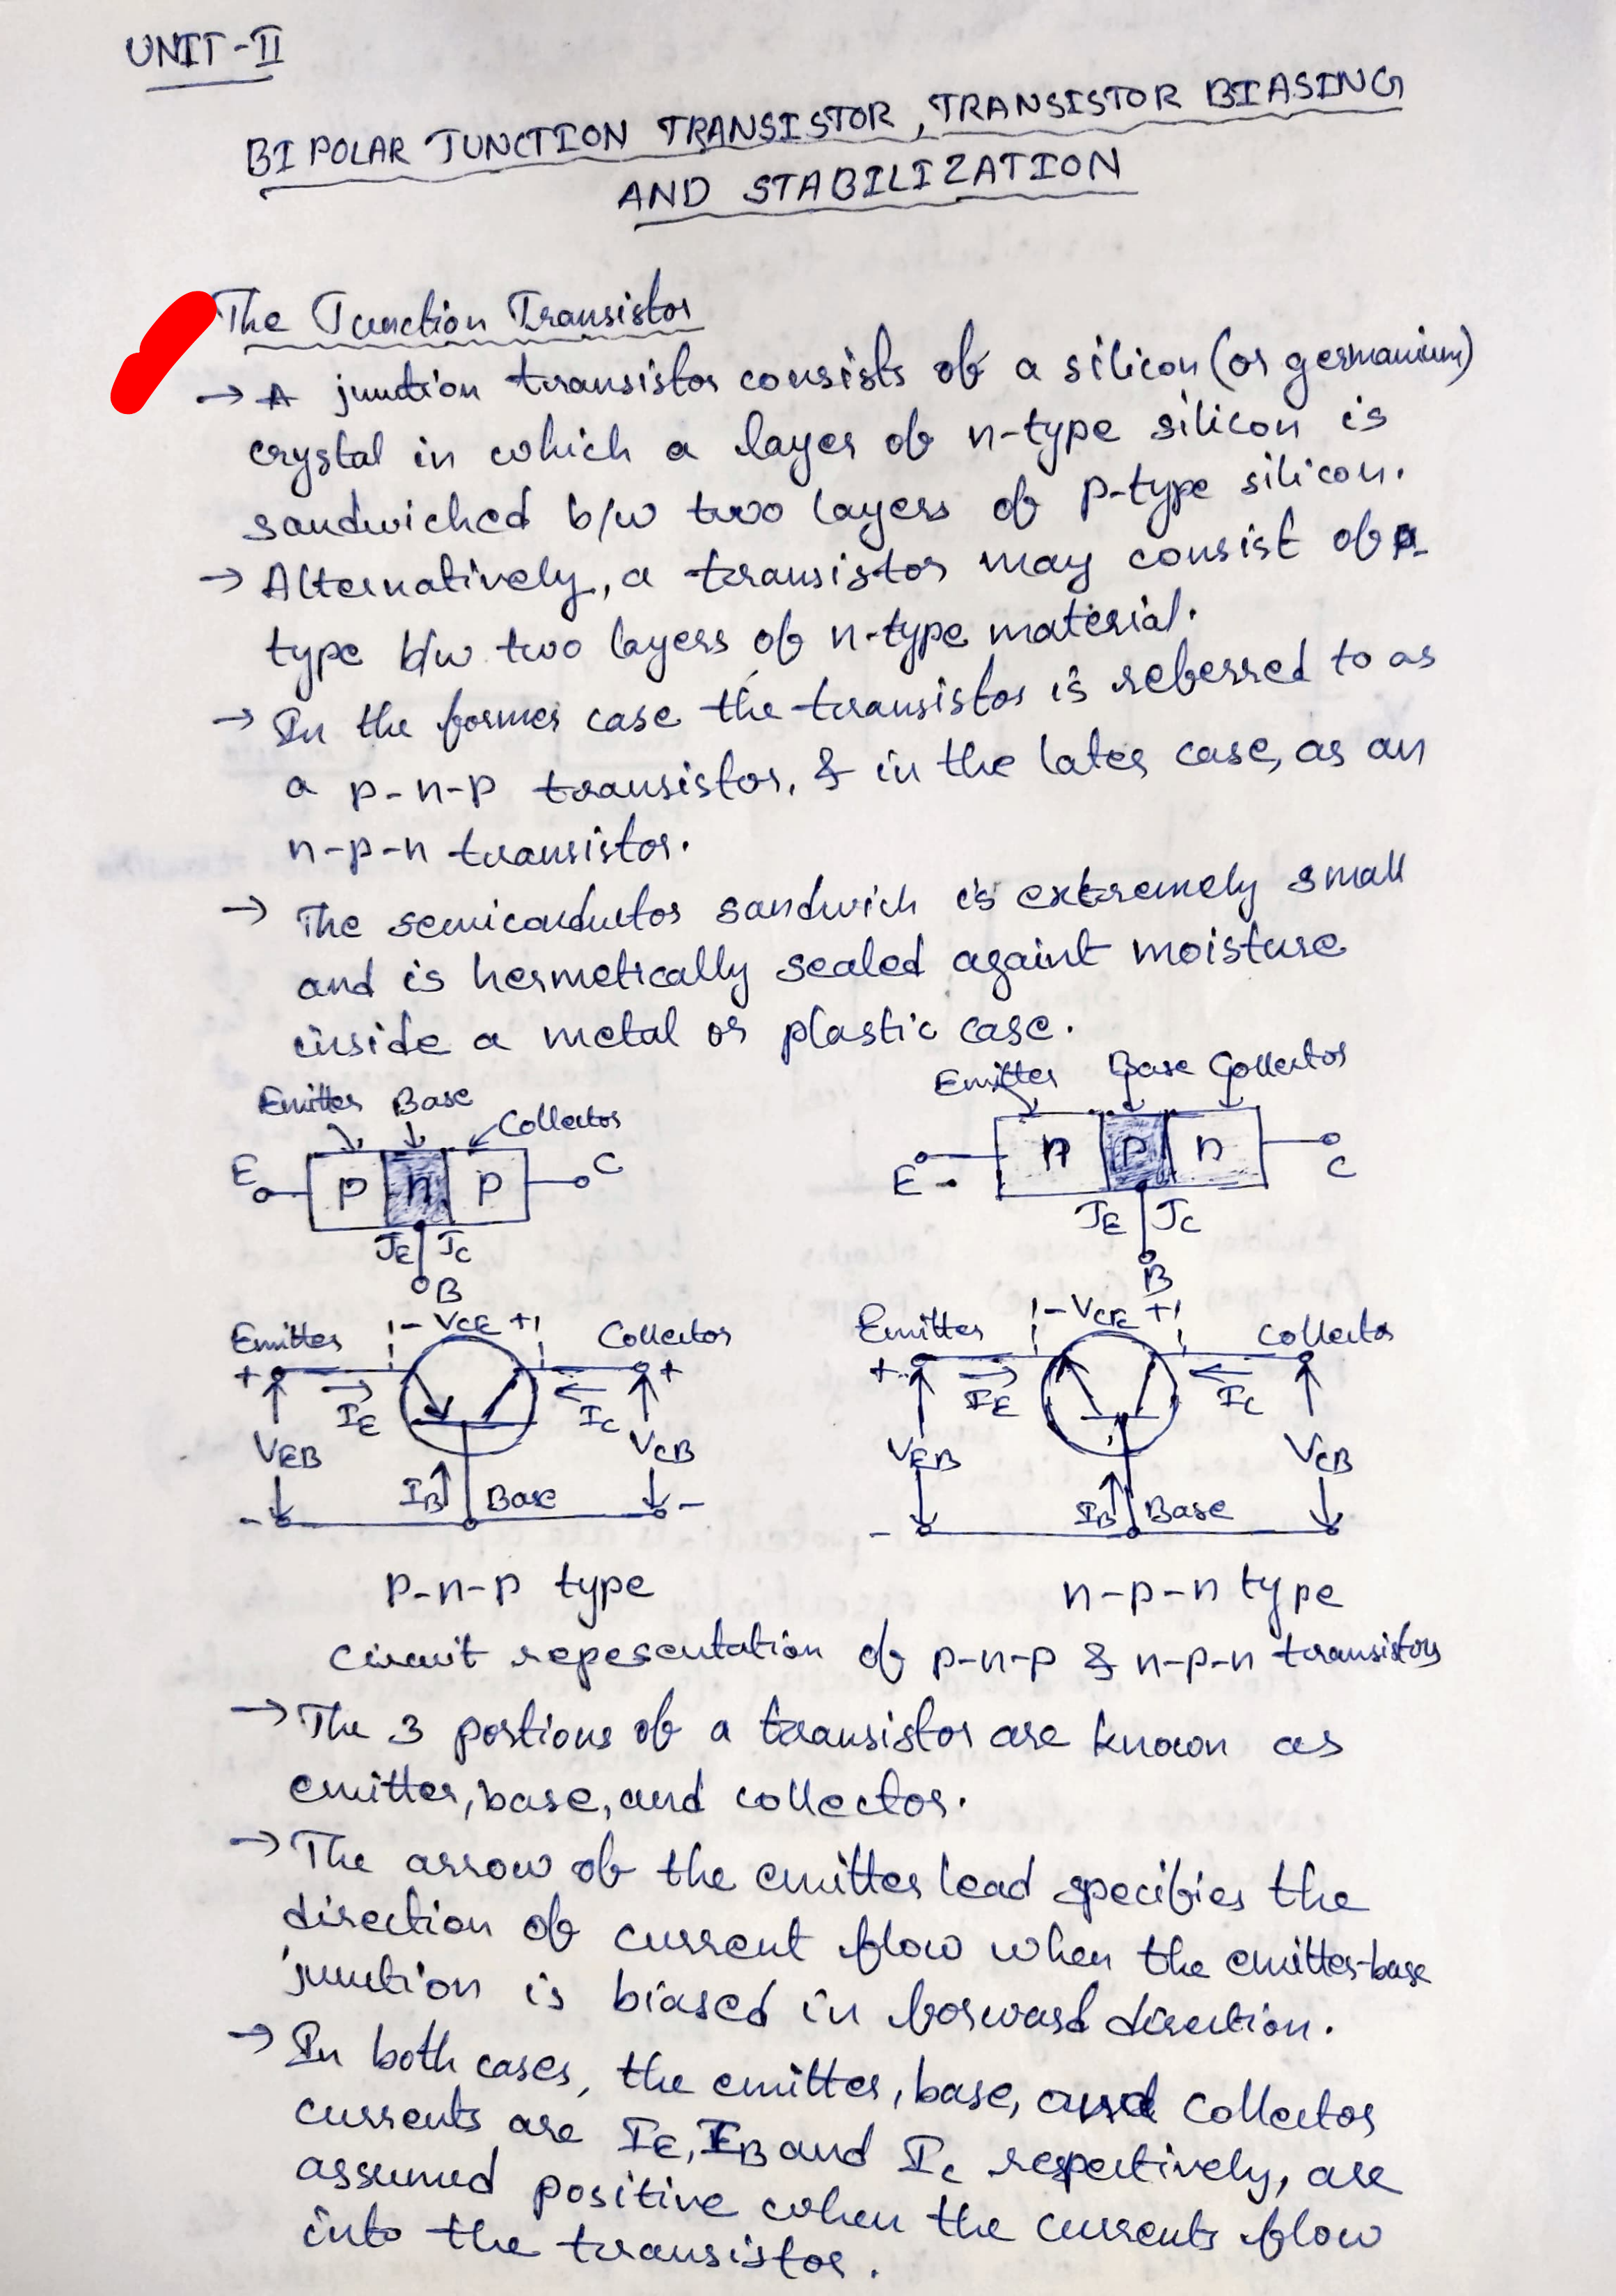 UNIT-II
BIPOLAR JUNCTION TRANSISTOR, TRANSISTOR BIASING
AND STABILIZATION
The Junction Transistor
→ A junction transistor consists of a silicon (or germanium)
crystal in which a layer of n-type silicon is
sandwiched b/w two layers of p-type silicon.
→ Alternatively, a transistor may consist of p
type b/w two layers of n-type material.
→ In the former case the transistor is referred to as
a p-n-p transistor, & in the later case, as an
n-p-n transistor.
→ The semiconductor sandwich is extremely small
and is hermetically sealed againt moisture
inside a metal or plastic case.
Emitter Base Collector
E p n p C
JE JC
B
Emitter Base Collector
E n p n C
JE JC
B
Emitter - VCE + Collector
+ IE IC +
VEB VCB
IB Base
- -
p-n-p type
Emitter - VCE + Collector
+ IE IC
VEB VCB
IB Base
-
n-p-n type
Circuit repesentation of p-n-p & n-p-n transistors
→ The 3 portions of a transistor are known as
emitter, base, and collector.
→ The arrow of the emitter lead specifies the
direction of current flow when the emitter-base
junction is biased in forward direction.
→ In both cases, the emitter, base, and collector
currents are IE, IB and IC respectively, are
assumed positive when the currents flow
into the transistor.